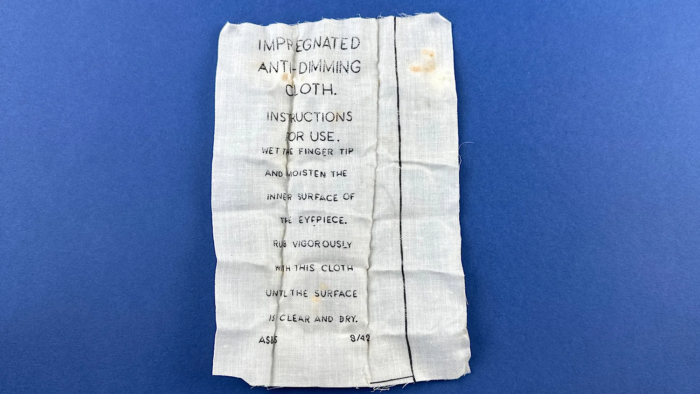 IMPREGNATED
ANTI-DIMMING
CLOTH.
INSTRUCTIONS
FOR USE.
WET THE FINGER TIP
AND MOISTEN THE
INNER SURFACE OF
THE EYEPIECE.
RUB VIGOROUSLY
WITH THIS CLOTH
UNTIL THE SURFACE
IS CLEAR AND DRY.
8/42